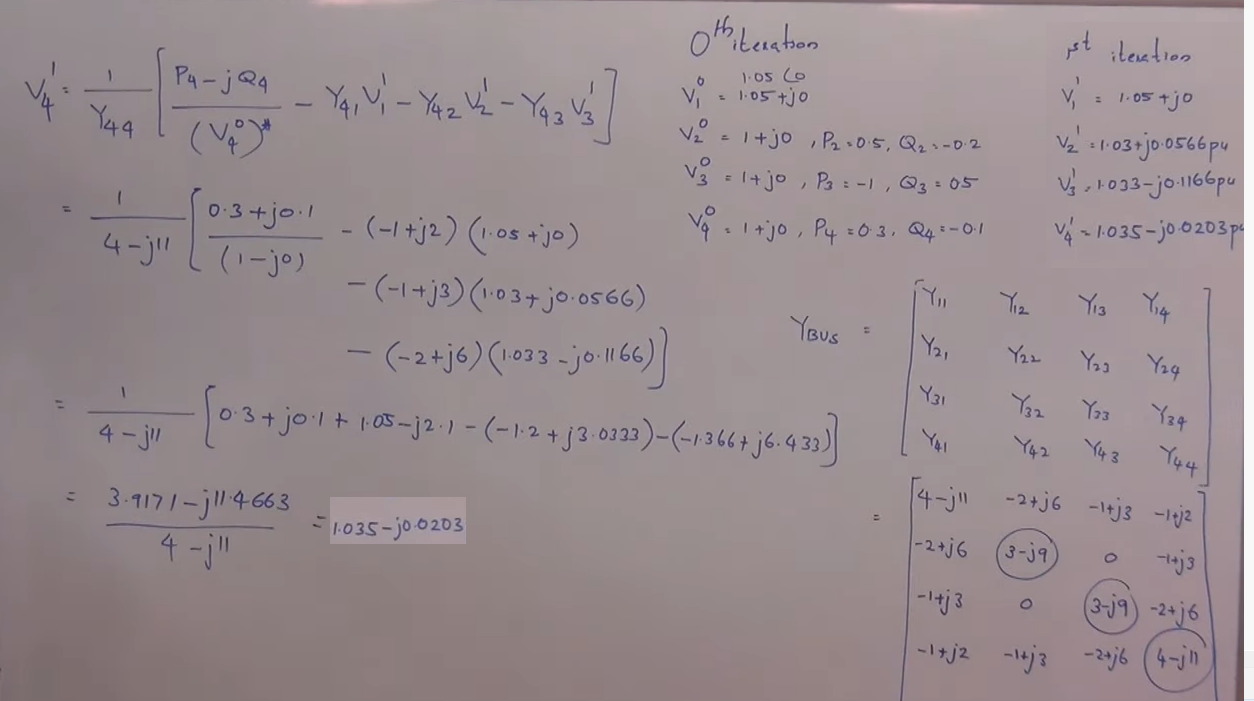 V₄¹ = 1/Y₄₄ [ (P₄ - jQ₄)/(V₄⁰)* - Y₄₁V₁¹ - Y₄₂V₂¹ - Y₄₃V₃¹ ]
= 1/(4-j11) [ (0.3+j0.1)/(1-j0) - (-1+j2)(1.05+j0)
- (-1+j3)(1.03+j0.0566)
- (-2+j6)(1.033-j0.1166) ]
= 1/(4-j11) [ 0.3+j0.1+1.05-j2.1-(-1.2+j3.0333)-(-1.366+j6.433) ]
= (3.9171-j11.4663)/(4-j11) = 1.035-j0.0203
0th iteration
1.05∠0
V₁⁰ = 1.05+j0
V₂⁰ = 1+j0, P₂=0.5, Q₂=-0.2
V₃⁰ = 1+j0, P₃=-1, Q₃=05
V₄⁰ = 1+j0, P₄=0.3, Q₄=-0.1
1st iteration
V₁¹ = 1.05+j0
V₂¹ = 1.03+j0.0566pu
V₃¹ = 1.033-j0.1166pu
V₄¹ = 1.035-j0.0203p
Y_BUS = [ Y₁₁ Y₁₂ Y₁₃ Y₁₄
Y₂₁ Y₂₂ Y₂₃ Y₂₄
Y₃₁ Y₃₂ Y₃₃ Y₃₄
Y₄₁ Y₄₂ Y₄₃ Y₄₄ ]
= [ 4-j11 -2+j6 -1+j3 -1+j2
-2+j6 3-j9 0 -1+j3
-1+j3 0 3-j9 -2+j6
-1+j2 -1+j3 -2+j6 4-j11